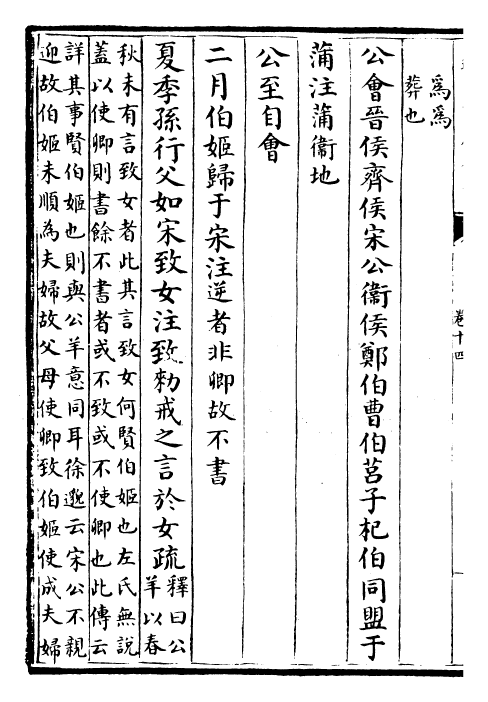 為為
葬也
公會晉侯齊侯宋公衞侯鄭伯曹伯莒子杞伯同盟于
蒲注蒲衞地
公至自會
二月伯姬歸于宋注逆者非卿故不書
夏季孫行父如宋致女注致勑戒之言於女疏
釋曰公
羊以春
秋未有言致女者此其言致女何賢伯姬也左氏無說
蓋以使卿則書餘不書者或不致或不使卿也此傳云
詳其事賢伯姬也則與公羊意同耳徐邈云宋公不親
迎故伯姬未順為夫婦故父母使卿致伯姬使成夫婦
卷十四